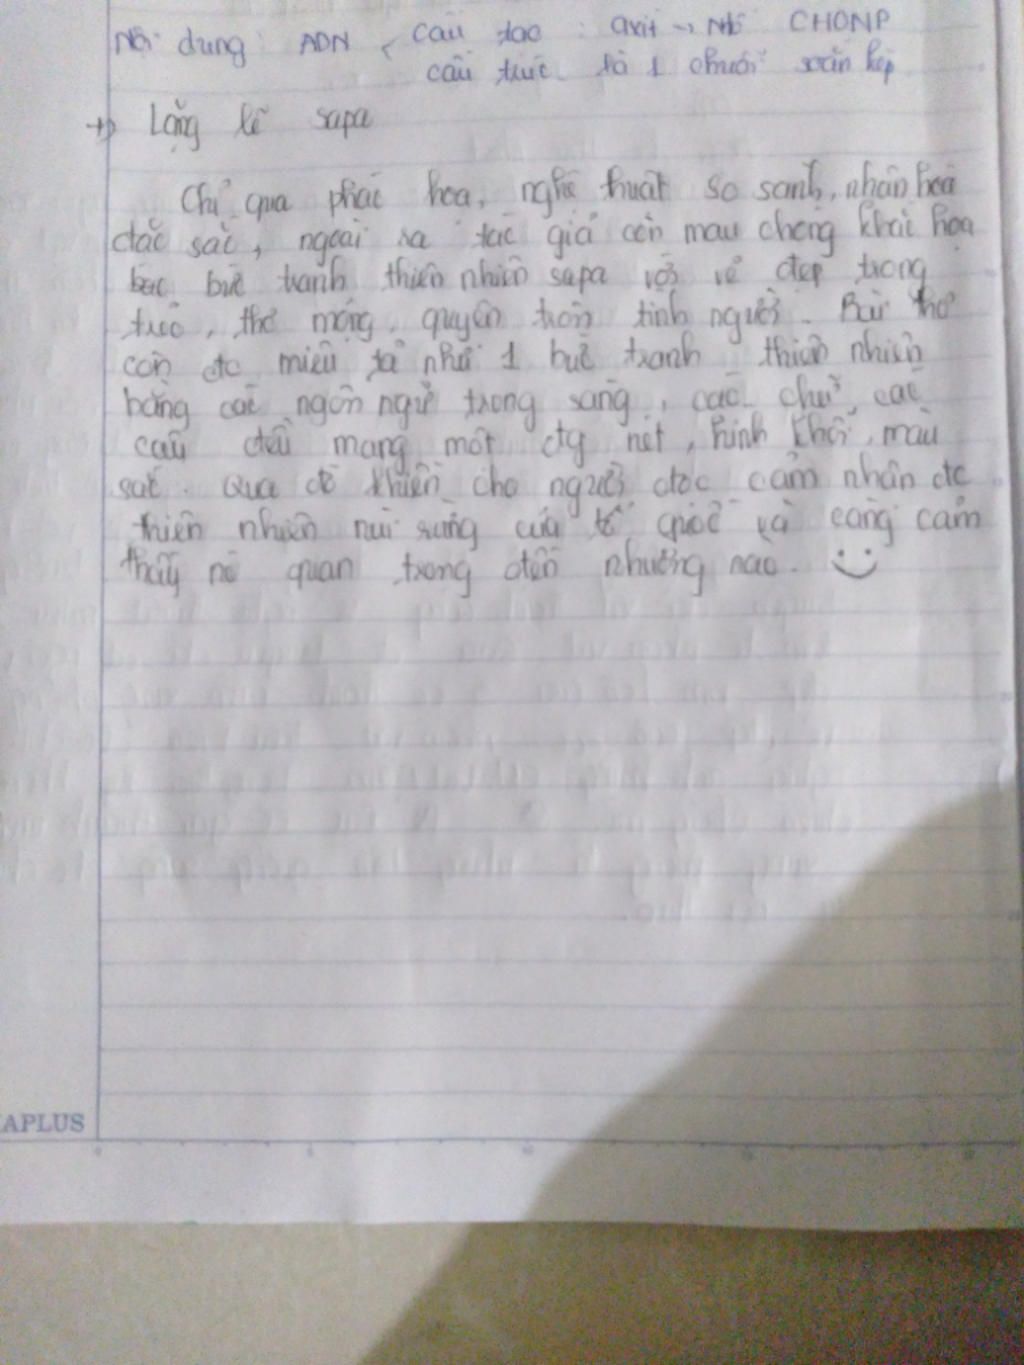 Nội dung: ADN < cấu tạo: axit → Nhỏ CHONP
cấu trúc là 1 chuỗi xoắn kép
→ Lặng lẽ sapa
Chỉ qua phác họa, nghệ thuật so sánh, nhân hóa
đắc sắc, ngoài ra tác giả còn mau chóng khắc họa
bức tranh thiên nhiên sapa với vẻ đẹp trong
trẻo, thơ mộng, quyện tròn tình người. Bài thơ
còn đc miêu tả như 1 bức tranh thiên nhiên
bằng các ngôn ngữ trong sáng, các chữ, các
câu đều mang một đg nét, hình khối, màu
sắc. Qua đó khiến cho người đọc cảm nhận đc
thiên nhiên núi rừng của tổ quốc và càng cảm
thấy nó quan trọng đến nhường nào.
APLUS